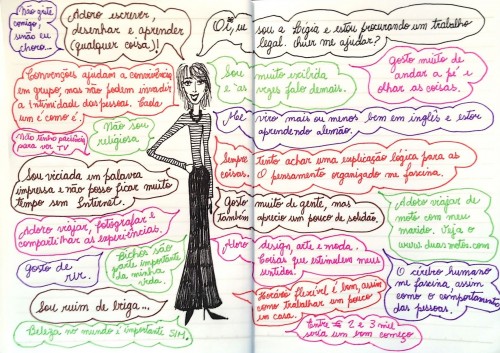 Não grite
comigo,
senão eu
choro...
Adoro escrever,
desenhar e aprender
(qualquer coisa)!
Oi, eu sou a Lígia e estou procurando um trabalho
legal. Quer me ajudar?
Convenções ajudam a convivência
em grupo, mas não podem invadir
a intimidade das pessoas. Cada
um é como é.
Sou muito exibida
e às vezes falo demais.
Gosto muito de
andar a pé e
olhar as coisas.
Não tenho paciência
para ver TV
Não sou
religiosa
Me viro mais ou menos bem em inglês e estou
aprendendo alemão.
Sou viciada em palavra
impressa e não posso ficar muito
tempo sem Internet.
Sempre tento achar uma explicação lógica para as
coisas. O pensamento organizado me fascina.
Gosto muito de gente, mas
também aprecio um pouco de solidão.
Adoro viajar de
moto com meu
marido. Veja o
www.duasmotos.com
Adoro viajar, fotografar e
compartilhar as experiências.
Bichos são
parte importante
da minha
vida.
Adoro design, arte e moda.
Coisas que estimulem meus
sentidos!
Gosto de
rir.
O cérebro humano
me fascina, assim
como o comportamento
das pessoas.
Sou ruim de briga...
Horário flexível é bom, assim
como trabalhar um pouco
em casa.
Beleza no mundo é importante SIM.
Entre 2 e 3 mil
seria um bom começo